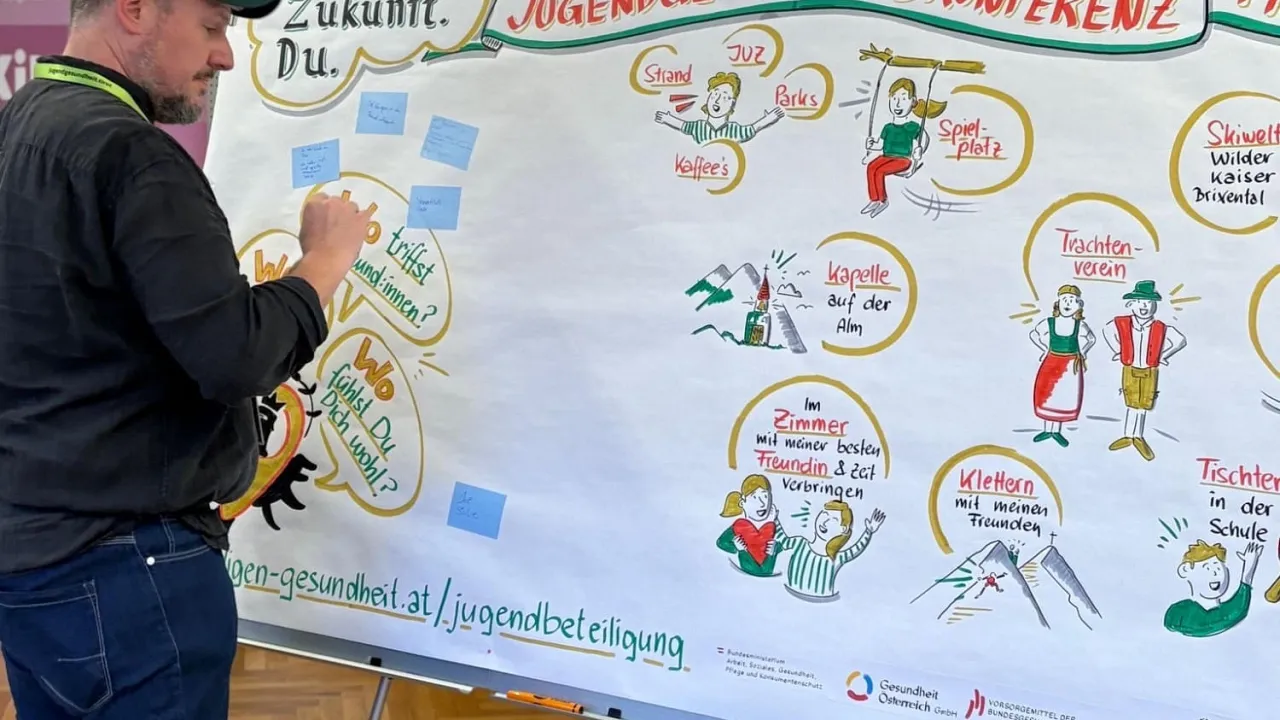 Zukunft.
Du.
JUGENDG
KONFERENZ
jugendgesundheit
Wo triffst
und:innen?
Wo
fühlst Du
Dich wohl?
igen-gesundheit.at/jugendbeteiligung
Strand
JUZ
Parks
Kaffee's
Spiel-
platz
Skiwelt
Wilder
Kaiser
Brixental
Kapelle
auf der
Alm
Trachten-
verein
Im
Zimmer
mit meiner besten
Freundin & Zeit
verbringen
Klettern
mit meinen
Freunden
Tischten
in der
Schule
Bundesministerium
Arbeit, Soziales, Gesundheit,
Pflege und Konsumentenschutz
Gesundheit
Österreich GmbH
VORSORGEMITTEL DER
BUNDESGES